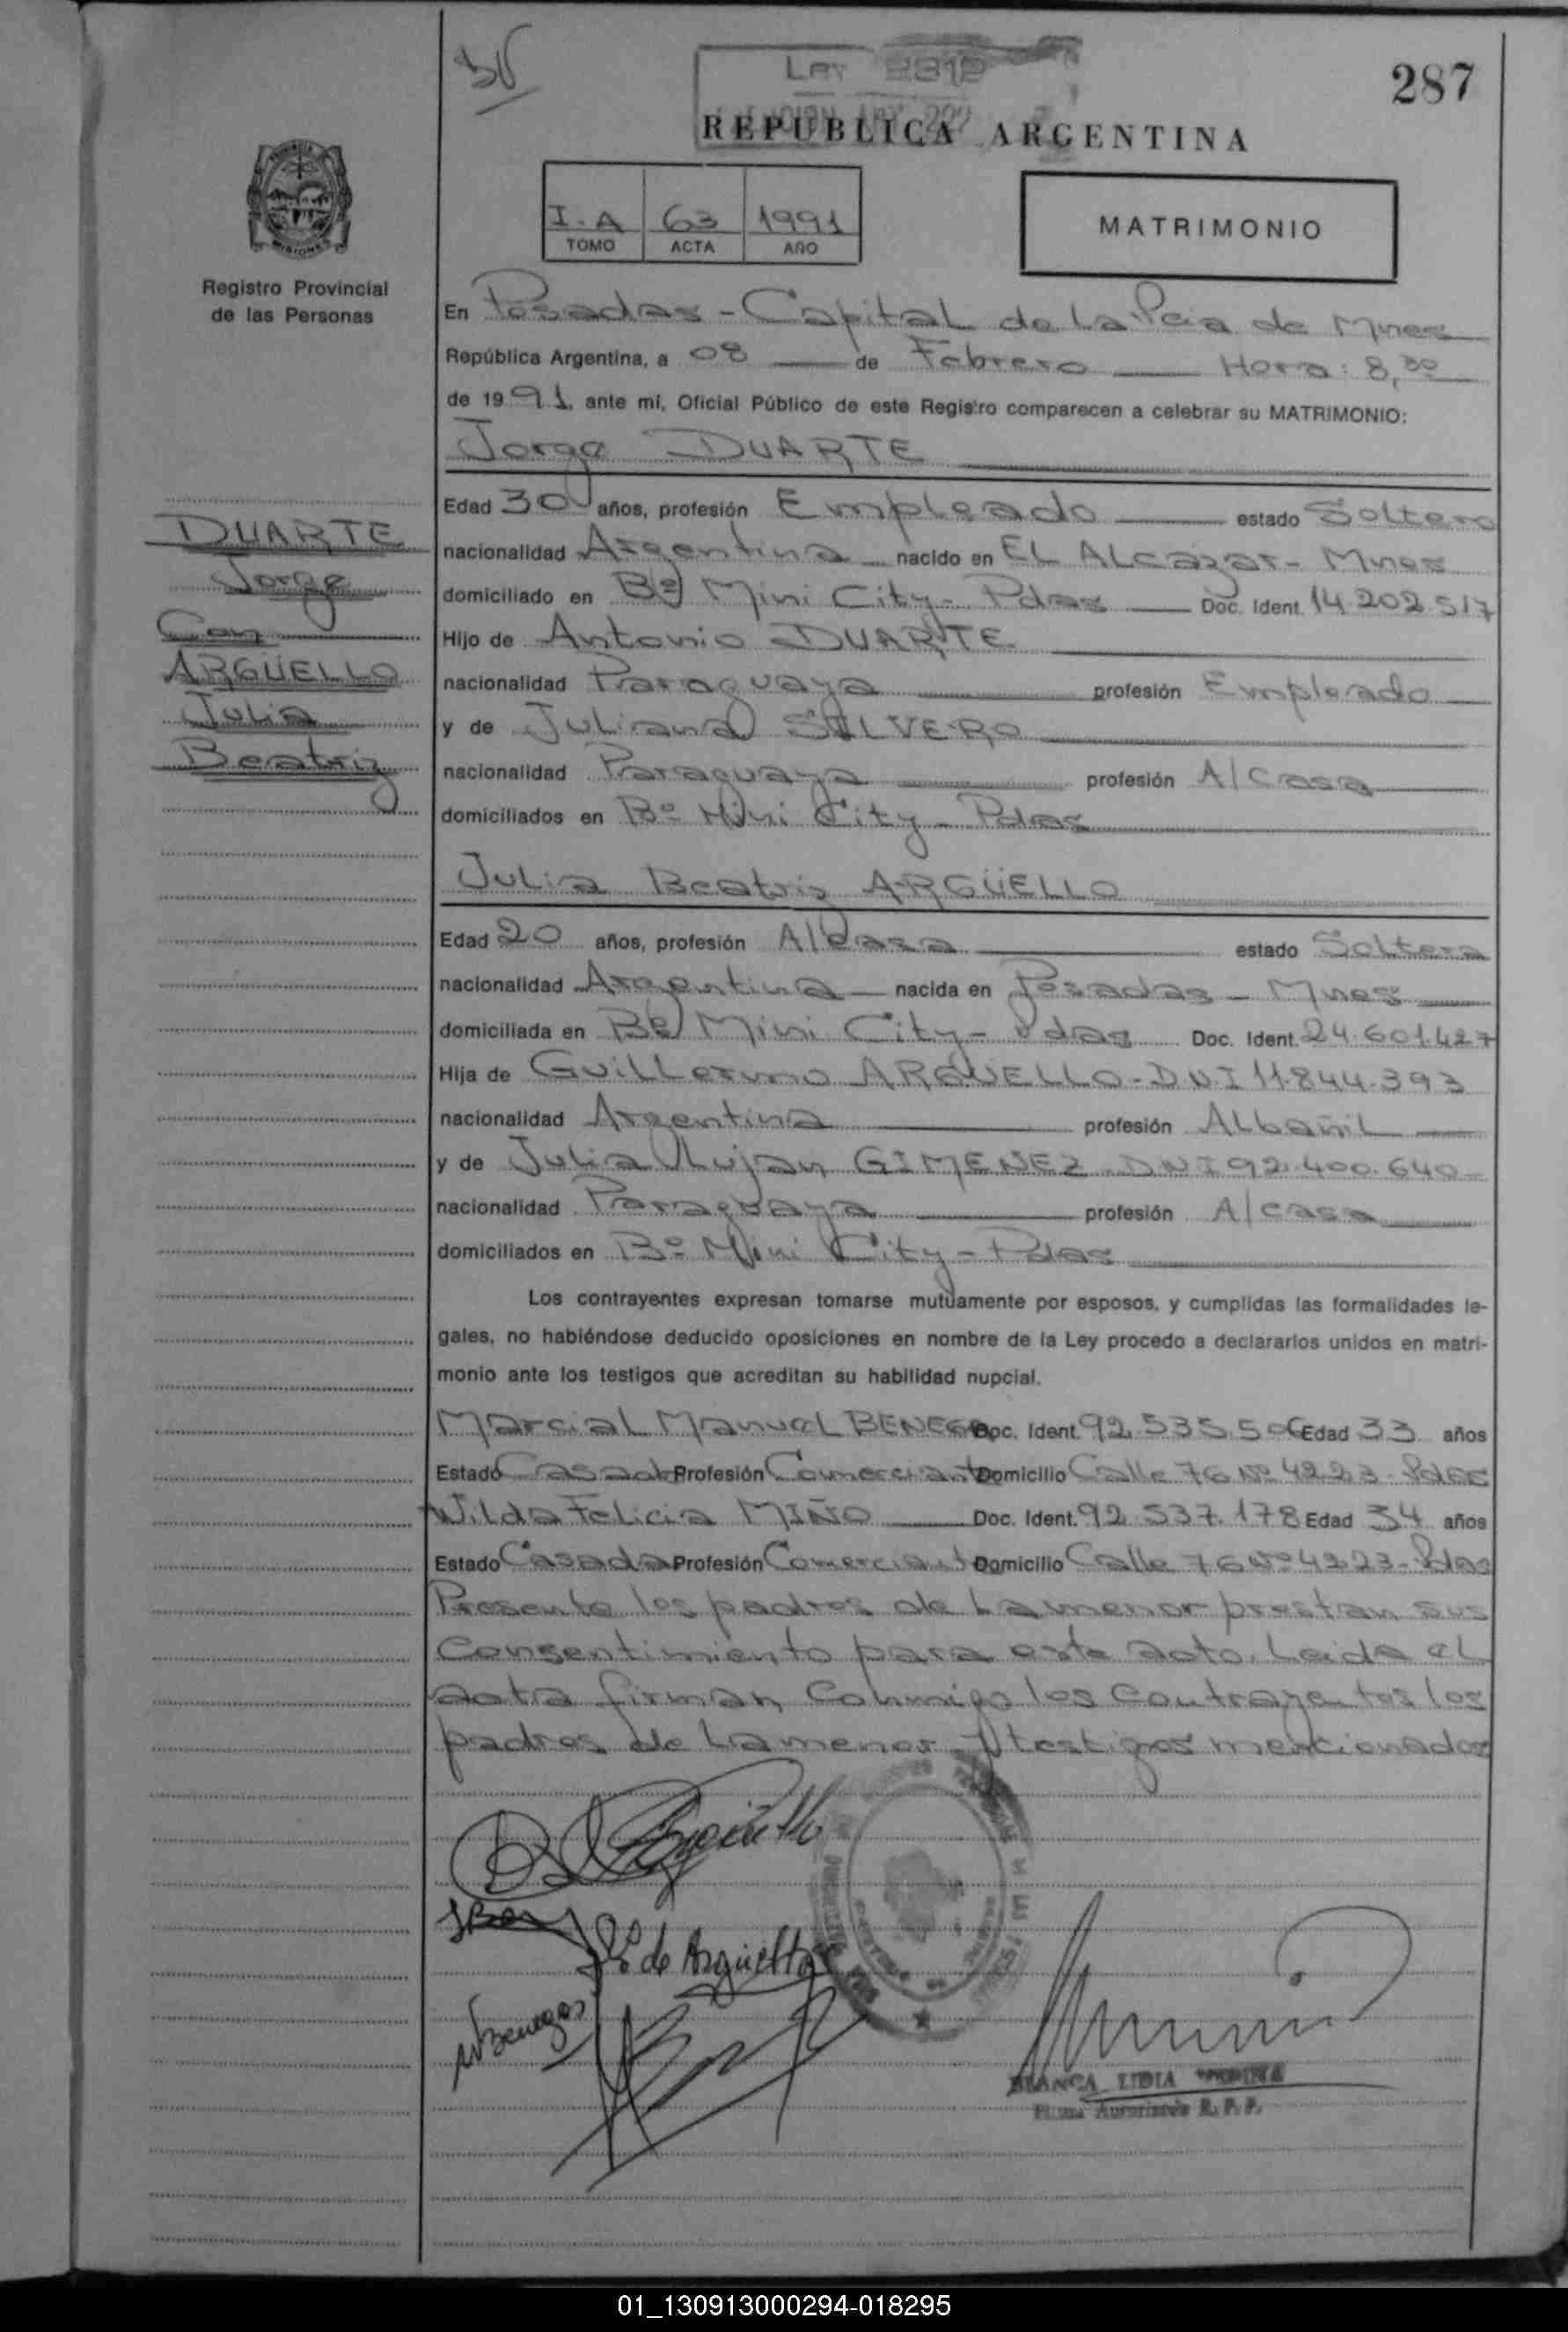 287
Ley 2312
REPUBLICA ARGENTINA
I.A 63 1991
TOMO ACTA AÑO
MATRIMONIO
MISIONES
Registro Provincial
de las Personas
En Posadas - Capital de la Pcia de Mnes
República Argentina, a 08 de Febrero Hora: 8,30
de 1991, ante mí, Oficial Público de este Registro comparecen a celebrar su MATRIMONIO:
Jorge DUARTE
DUARTE
Jorge
Con
ARGÜELLO
Julia
Beatriz
Edad 30 años, profesión Empleado estado Soltero
nacionalidad Argentina nacido en EL ALcazar- Mnes
domiciliado en Bº Mini City- Pdas Doc. Ident. 14.202.517
Hijo de Antonio DUARTE
nacionalidad Paraguaya profesión Empleado
y de Juliana SILVERO
nacionalidad Paraguaya profesión A/casa
domiciliados en Bº Mini City- Pdas
Julia Beatriz ARGÜELLO
Edad 20 años, profesión A/casa estado Soltera
nacionalidad Argentina nacida en Posadas - Mnes
domiciliada en Bº Mini City- Pdas Doc. Ident. 24.601.427
Hija de Guillermo ARGÜELLO-DNI 11.844.393
nacionalidad Argentina profesión ALbañil
y de Julia Lujan GIMENEZ DNI 92.400.640-
nacionalidad Paraguaya profesión A/casa
domiciliados en Bº Mini City-Pdas
Los contrayentes expresan tomarse mutuamente por esposos, y cumplidas las formalidades le-
gales, no habiéndose deducido oposiciones en nombre de la Ley procedo a declararlos unidos en matri-
monio ante los testigos que acreditan su habilidad nupcial.
Marcial Manuel BENEGAS Doc. Ident. 92.535.506 Edad 33 años
Estado Casado Profesión Comerciante Domicilio Calle 76 Nº 4223-Pdas
Wilda Felicia MIÑO Doc. Ident. 92.537.178 Edad 34 años
Estado Casada Profesión Comerciante Domicilio Calle 76 Nº 4223-Pdas
Presente los padres de La menor prestan sus
Consentimiento para este acto. Leida el
acta firman Conmigo los contrayentes los
padres de La menor y testigos mencionados
Argüello
de Argüello
Benegas
BLANCA LIDIA
R. P. P.
01_130913000294-018295